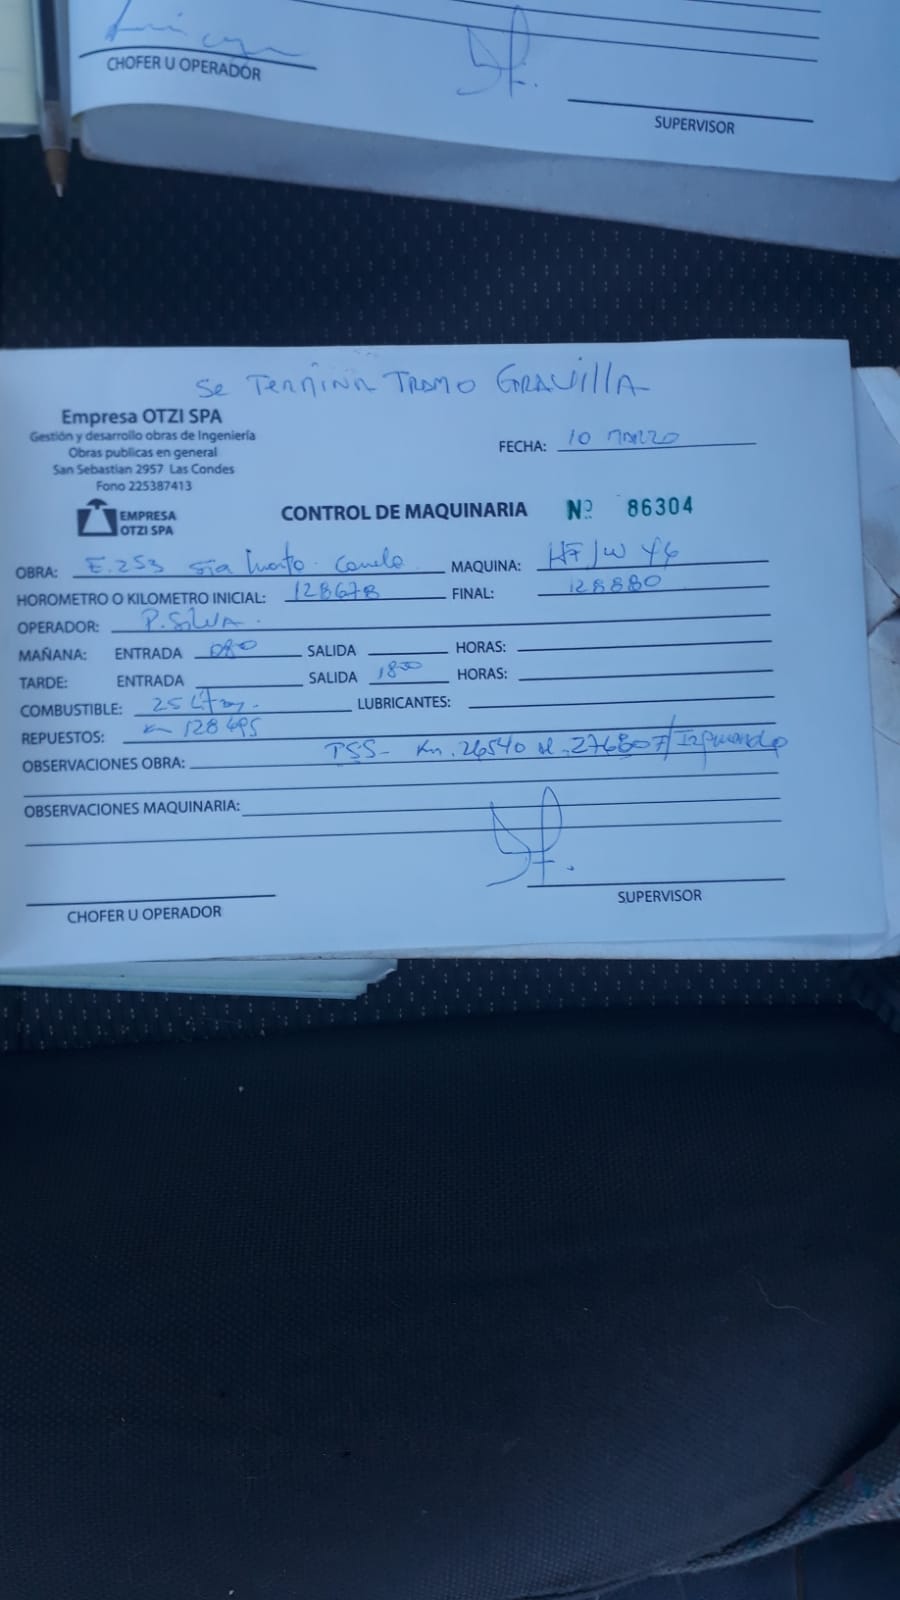 CHOFER U OPERADOR
SUPERVISOR
Se TERMINA TRAMO GRAVILLA
Empresa OTZI SPA
Gestión y desarrollo obras de Ingeniería
Obras publicas en general
San Sebastian 2957 Las Condes
Fono 225387413
FECHA: 10 MARZO
EMPRESA
OTZI SPA
CONTROL DE MAQUINARIA Nº 86304
OBRA: E.253 Canelo MAQUINA: HFJW 46
HOROMETRO O KILOMETRO INICIAL: 128678 FINAL: 128880
OPERADOR: P. SILVA.
MAÑANA: ENTRADA SALIDA HORAS:
TARDE: ENTRADA SALIDA 1800 HORAS:
COMBUSTIBLE: 25 LUBRICANTES:
REPUESTOS: Km 128495
OBSERVACIONES OBRA: Km. 26540 al
OBSERVACIONES MAQUINARIA:
CHOFER U OPERADOR
SUPERVISOR